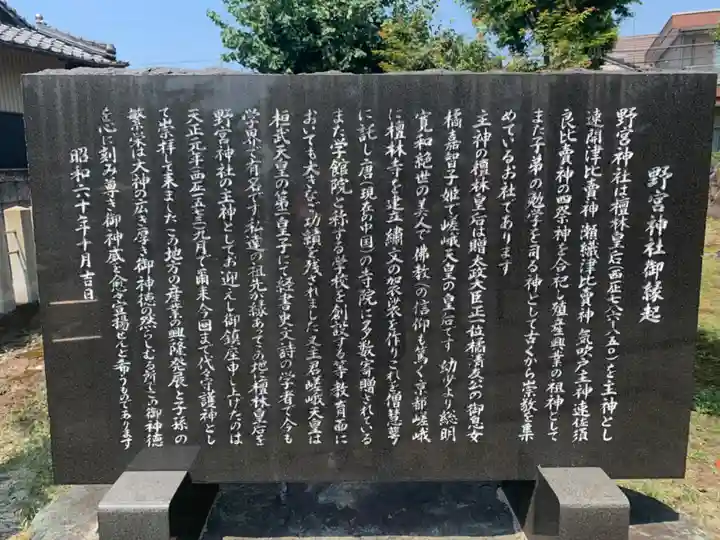 野宮神社御縁起
野宮神社は檀林皇后(西正七八六〜八五〇)を主神とし
速開津比賣神 瀬織津比賣神 氣吹戸主神 速佐須
良比賣神の四祭神を合祀し殖産興業の祖神として
また子弟の勉学を司る神として古くから崇敬を集
めているお社であります
主神の檀林皇后は贈太政大臣正一位橘清友公の御息女
橘嘉智子姫で嵯峨天皇の皇后です 幼少より聡明
寛和絶世の美人で佛教への信仰も篤く京都嵯峨
に檀林寺を建立 繍文の袈裟を作りこれを僧慧萼
に託し唐(現在の中国)の寺院に多数寄贈されている
また学館院と称する学校を創設する等教育面に
おいても大きな功績を残されました 又主君嵯峨天皇は
桓武天皇の第二皇子にて経書史文詩の学者で今も
学界で有名です 私達の祖先が縁あってこの地に檀林皇后を
野宮神社の主神としてお迎えし御鎮座申し上げたのは
天正元年(西正一五七三)九月で爾来今回まで代々守護神とし
て崇拝して来ました この地方の産業の興隆発展と子孫の
繁栄は大神の広き厚き御神徳の然らしむる所でこの御神徳
を心に刻み尊き御神威を愈々宣揚せんと希うものであります
昭和六十年十月吉日